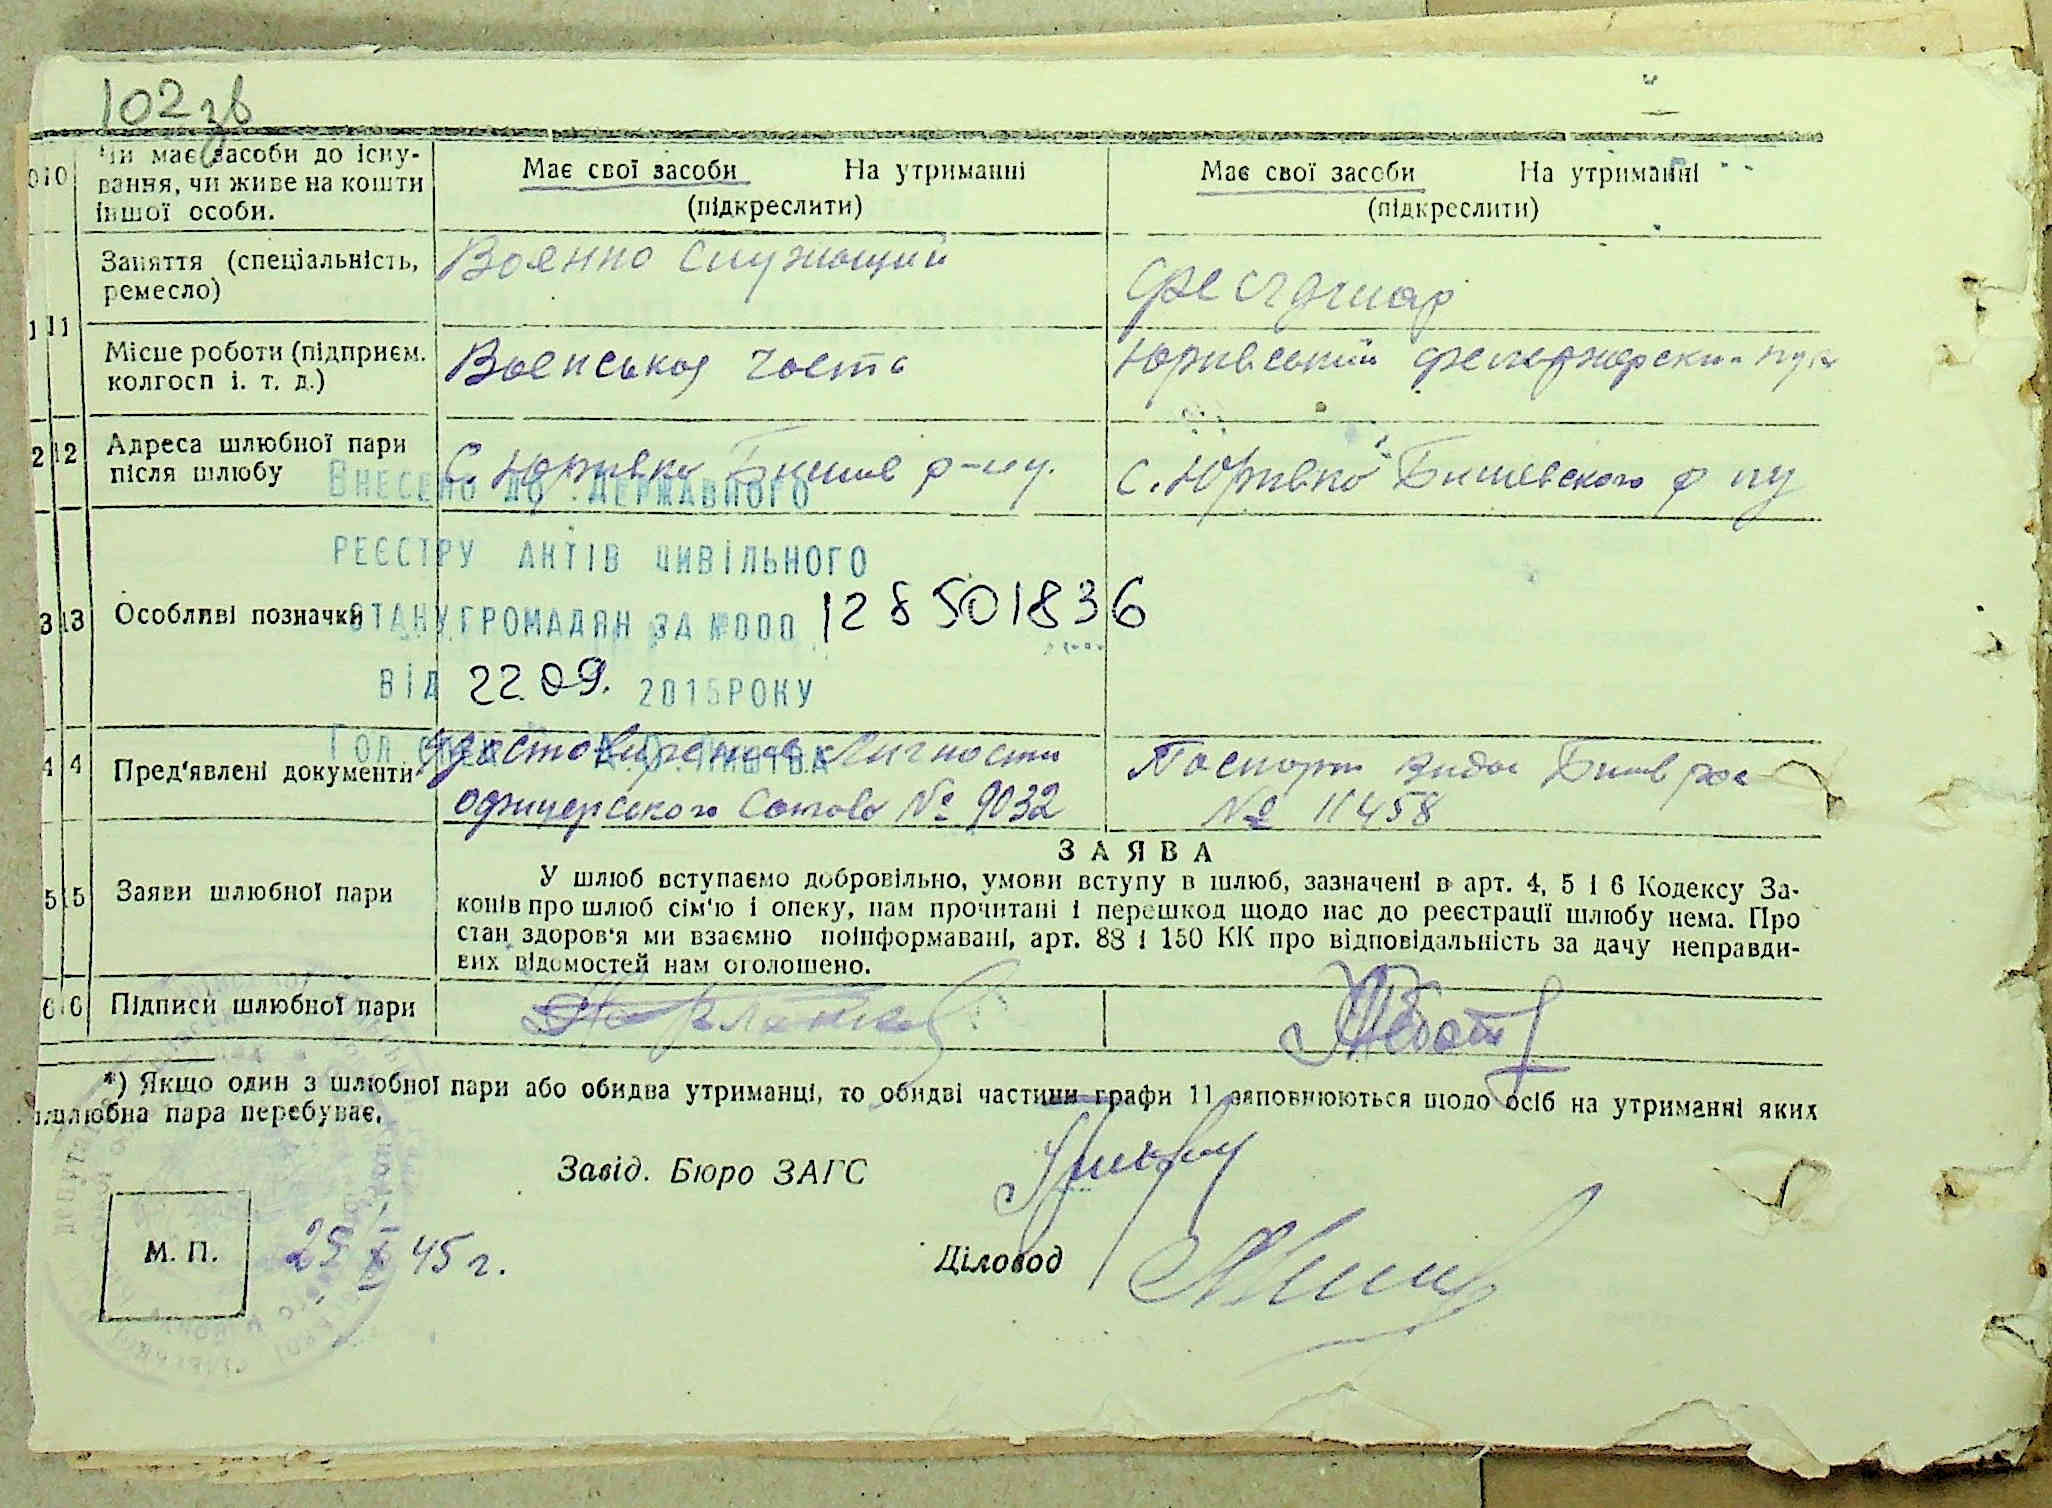 102 зв
10 Чи має засоби до існу-
вання, чи живе на кошти
іншої особи.
Має свої засоби На утриманні
(підкреслити)
Має свої засоби На утриманні
(підкреслити)
11 Заняття (спеціальність,
ремесло)
Воянно служащий
Місце роботи (підприєм.
колгосп і. т. д.)
Воєнськоя часть
12 Адреса шлюбної пари
після шлюбу
С. Юрівка Бишев р-ну.
С. Юрівка Бишевского р ну
ВНЕСЕНО ДО ДЕРЖАВНОГО
РЕЄСТРУ АКТІВ ЦИВІЛЬНОГО
13 Особливі позначки
СТАНУ ГРОМАДЯН ЗА №000 128501836
ВІД 22.09. 2015РОКУ
14 Пред'явлені документи
Личности
офицерського Состава № 9032
Паспорт видан Бишев
№ 11458
15 Заяви шлюбної пари
ЗАЯВА
У шлюб вступаємо добровільно, умови вступу в шлюб, зазначені в арт. 4, 5 і 6 Кодексу За-
конів про шлюб сім'ю і опеку, нам прочитані і перешкод щодо нас до реєстрації шлюбу нема. Про
стан здоров'я ми взаємно поінформавані, арт. 88 і 150 КК про відповідальність за дачу неправди-
вих відомостей нам оголошено.
16 Підписи шлюбної пари
*) Якщо один з шлюбної пари або обидва утриманці, то обидві частини графи 11 заповнюються щодо осіб на утриманні яких
шлюбна пара перебуває.
Завід. Бюро ЗАГС
М. П.
25 X 45 г.
Діловод